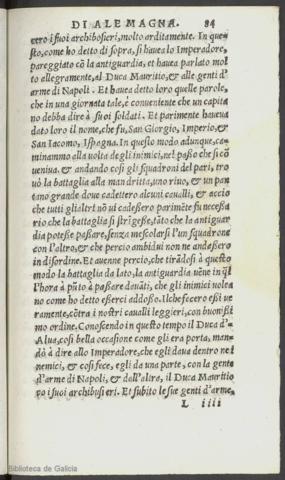 DI ALEMAGNA. 84
cero i suoi archibosieri, molto arditamente. In que-
sto, come ho detto di sopra, si hauea lo Imperadore,
pareggiato cō la antiguardia, et hauea parlato mol
to allegramente, al Duca Mauritio, & alle genti d'
arme di Napoli. Et hauea detto loro quelle parole,
che in una giornata tale, è conueniente che un capita
no debba dire à suoi soldati. Et parimente haueua
dato loro il nome, che fu, San Giorgio, Imperio, &
San Iacomo, Ispagna. In questo modo adunque, ca-
minammo alla uolta degli inimici, nel passo che si cō
ueniua. & andando così gli squadroni del pari, tro
uò la battaglia alla man dritta, uno riuo, & un pan
tano grande doue cadettero alcuni caualli, & accio
che tutti gli altri nō ui cadessero parimēte fu necessa
rio che la battaglia si strigesse, tāto che la antiguar
dia potesse passare, senza mescolarsi l'un squadrone
con l'altro, & che percio ambidui non ne andassero
in disordine. Et auenne percio, che tirādosi à questo
modo la battaglia da lato, la antiguardia uēne in q̄l
l'hora à pūto à passare dauāti, che gli inimici uolea
no come ho detto esserci addosso. Ilche fecero essi ue
ramente, cōtra i nostri caualli leggieri, con buonissi
mo ordine. Conoscendo in questo tempo il Duca d'-
Alua, così bella occasione come gli era porta, man-
dò à dire allo Imperadore, che egli daua dentro ne i
nemici, & così fece, egli da una parte, con la gente
d'arme di Napoli, & dall'altra, il Duca Mauritio
co i suoi archibusieri. Et subito le sue genti d'arme,
L iiii
Biblioteca de Galicia